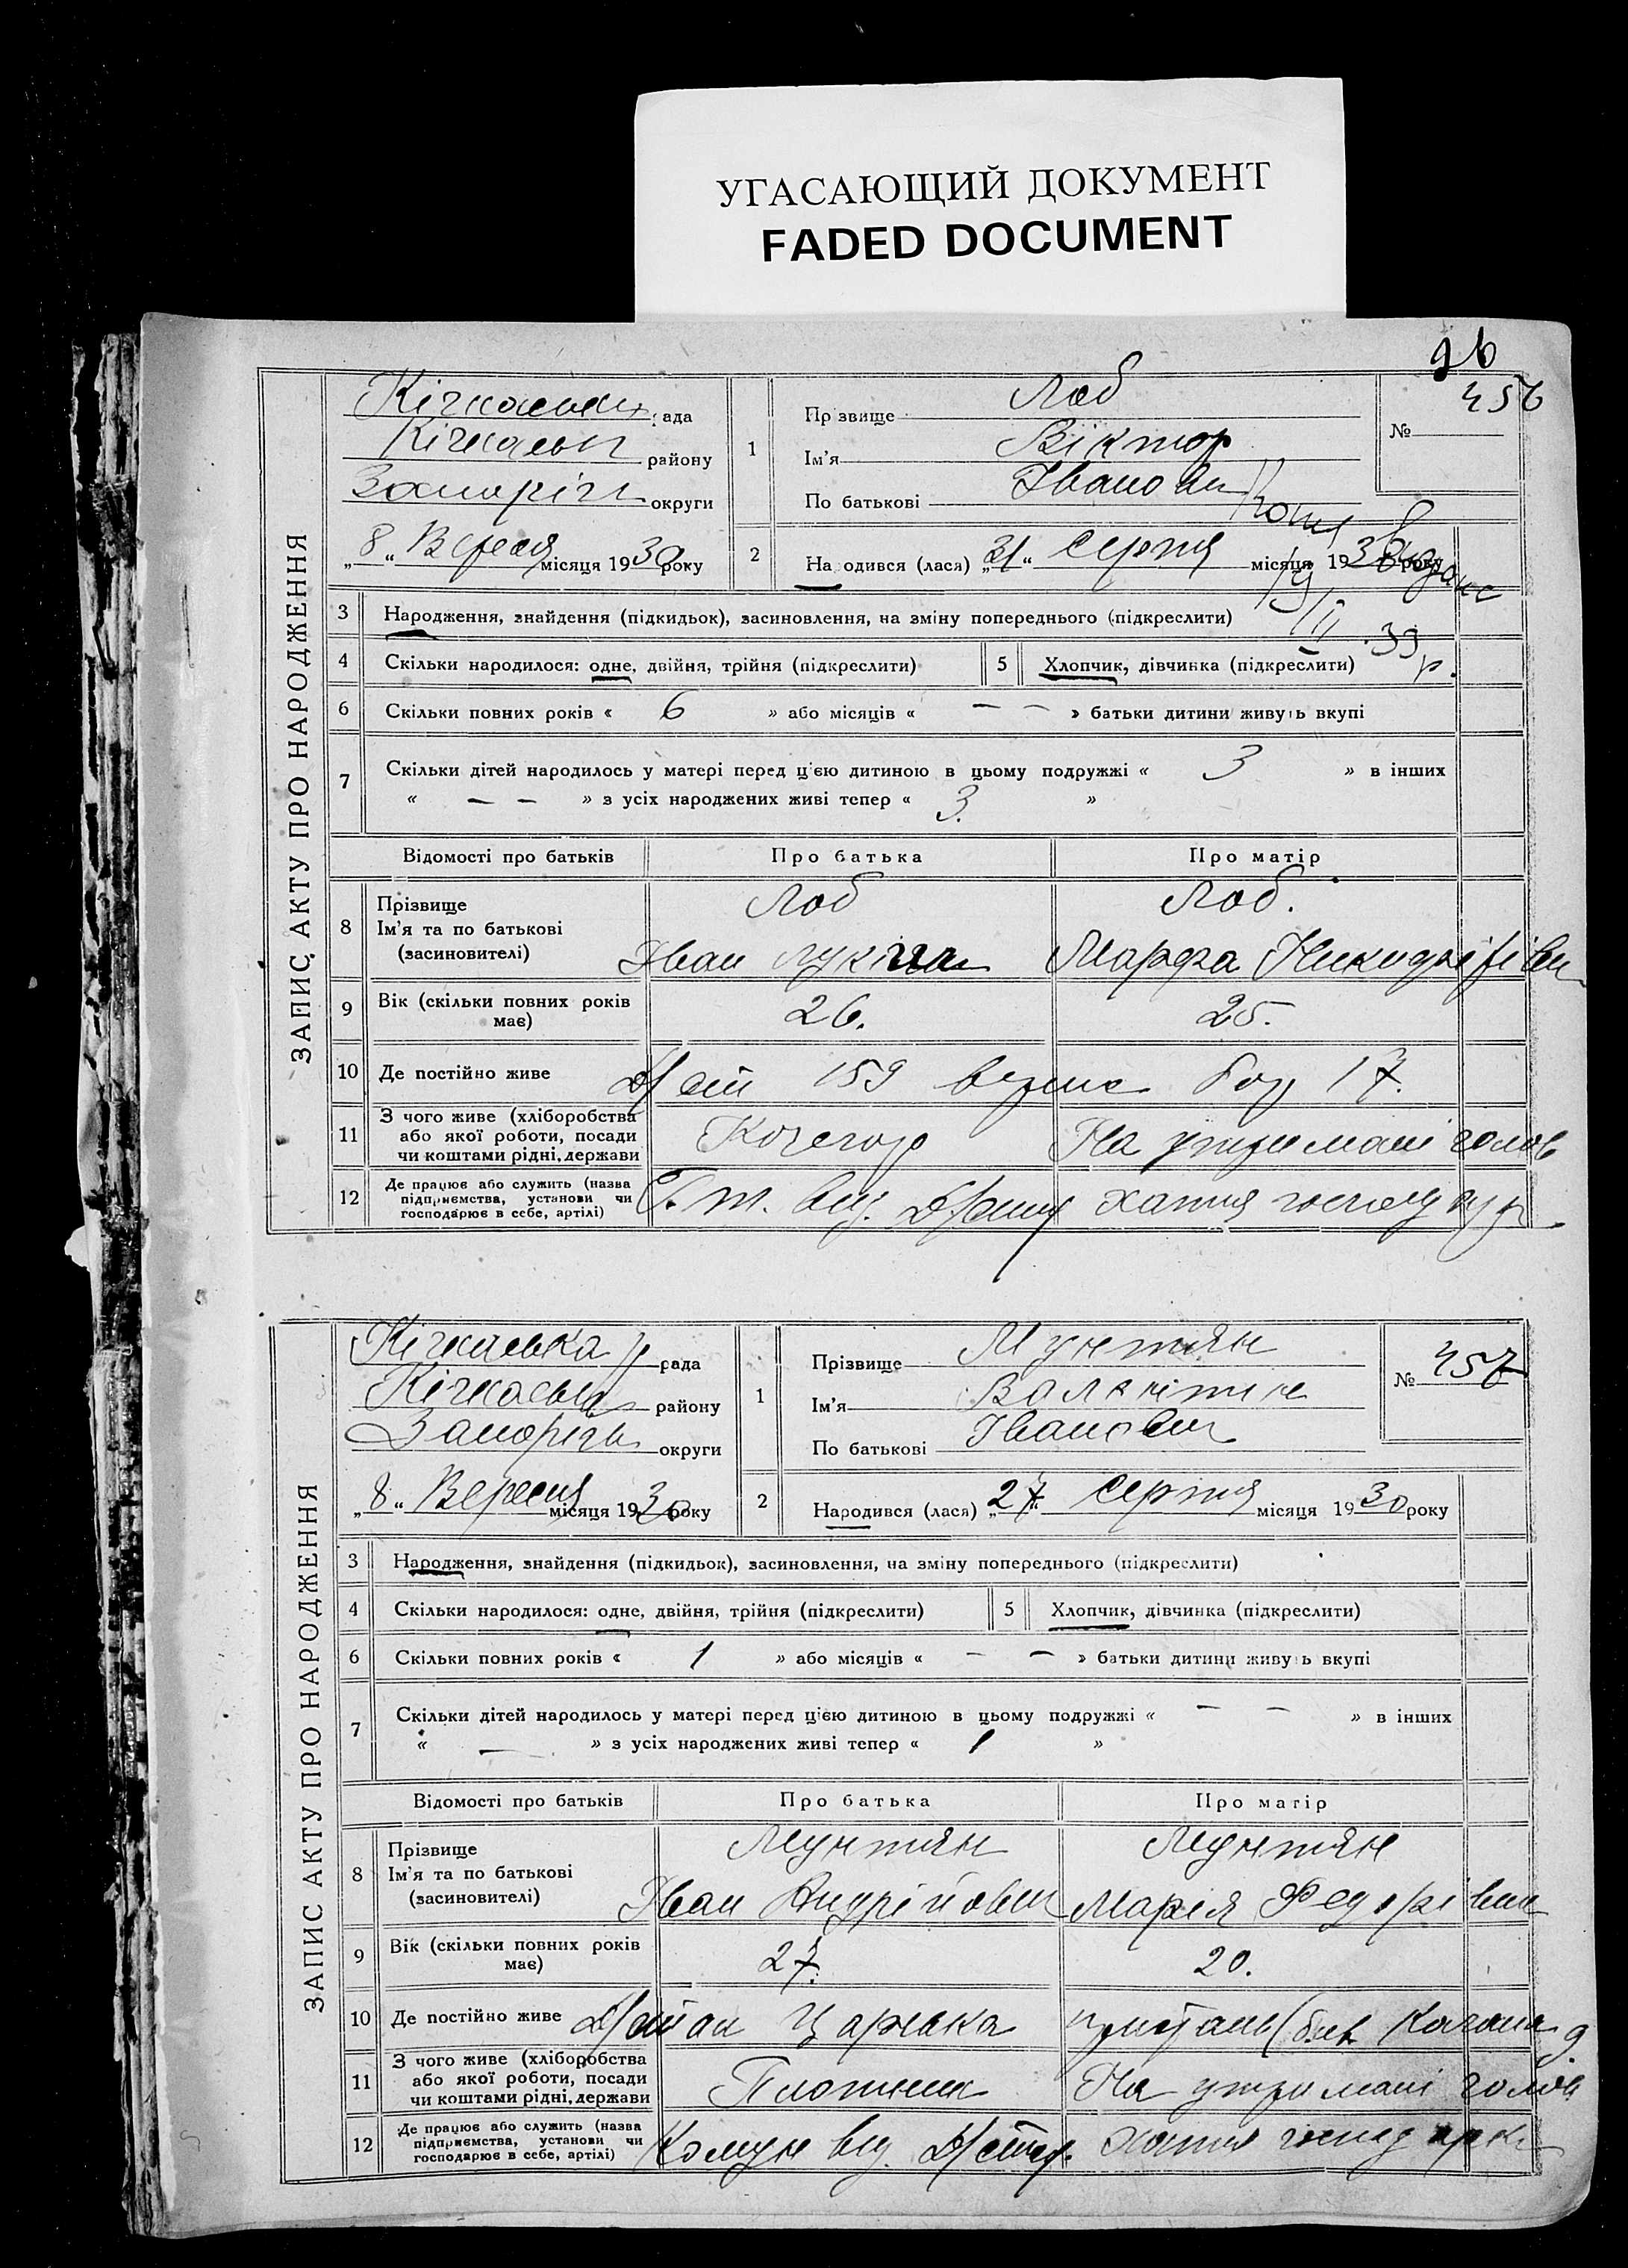 УГАСАЮЩИЙ ДОКУМЕНТ
FADED DOCUMENT
96
ЗАПИС АКТУ ПРО НАРОДЖЕННЯ
Кічкаськ рада
Кічкаськ району
Запоріж округи
„8“ Вересня місяця 1930 року
1
Прізвище Лоб
Ім'я Віктор
По батькові Іванович
№ 456
2 Народився (лася) „31“ Серпня місяця 1930 року
Копія видана
19/II.39 р.
3 Народження, знайдення (підкидьок), засиновлення, на зміну попереднього (підкреслити)
4 Скільки народилося: одне, двійня, трійня (підкреслити) 5 Хлопчик, дівчинка (підкреслити)
6 Скільки повних років « 6 » або місяців « — — » батьки дитини живуть вкупі
7 Скільки дітей народилось у матері перед цією дитиною в цьому подружжі « 3 » в інших
« — — » з усіх народжених живі тепер « 3. »
Відомості про батьків Про батька Про матір
8 Прізвище
Ім'я та по батькові
(засиновителі)
Лоб Лоб.
Іван Лукіч Марфа
9 Вік (скільки повних років
має)
26. 25.
10 Де постійно живе 159 17.
11 З чого живе (хліборобства
або якої роботи, посади
чи коштами рідні, держави
Кочегар На утримані голов
12 Де працює або служить (назва
підприємства, установи чи
господарює в себе, артілі)
від. хатня господар
ЗАПИС АКТУ ПРО НАРОДЖЕННЯ
Кічкаська рада
Кічкаськ району
Запоріж округи
„8“ Вересня місяця 1930 року
1
Прізвище Мунтян
Ім'я Валентин
По батькові Іванович
№ 457
2 Народився (лася) „27“ Серпня місяця 1930 року
3 Народження, знайдення (підкидьок), засиновлення, на зміну попереднього (підкреслити)
4 Скільки народилося: одне, двійня, трійня (підкреслити) 5 Хлопчик, дівчинка (підкреслити)
6 Скільки повних років « 1 » або місяців « — — » батьки дитини живуть вкупі
7 Скільки дітей народилось у матері перед цією дитиною в цьому подружжі « — — » в інших
« — » з усіх народжених живі тепер « 1 »
Відомості про батьків Про батька Про матір
8 Прізвище
Ім'я та по батькові
(засиновителі)
Мунтян Мунтян
Іван Андрійович Марія Федорівна
9 Вік (скільки повних років
має)
27. 20.
10 Де постійно живе
11 З чого живе (хліборобства
або якої роботи, посади
чи коштами рідні, держави
Плотник На утримані голов
12 Де працює або служить (назва
підприємства, установи чи
господарює в себе, артілі)
Комун від. хатня господарк